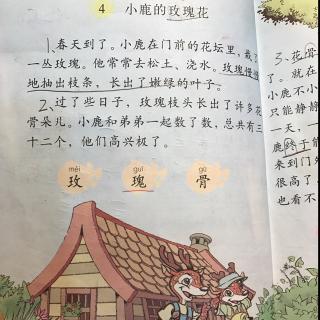 4 小鹿的玫瑰花
1、春天到了。小鹿在门前的花坛里，栽了
一丛玫瑰。他常常去松土、浇水。玫瑰慢慢
地抽出枝条，长出了嫩绿的叶子。
2、过了些日子，玫瑰枝头长出了许多花
骨朵儿。小鹿和弟弟一起数了数，总共有三
十二个，他们高兴极了。
méi guī gū
玫 瑰 骨
3、花骨
了。就在
小鹿不小
只能静静
一天，
鹿终于能
来到门外
很高了，
也看不